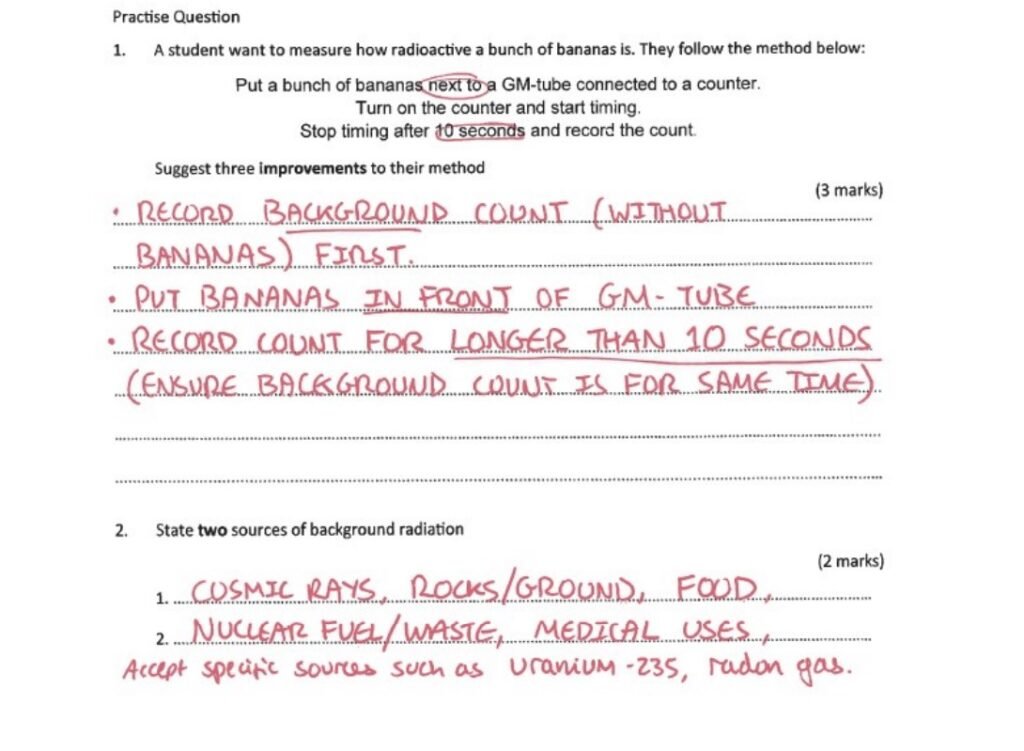 Practise Question
1. A student want to measure how radioactive a bunch of bananas is. They follow the method below:
Put a bunch of bananas next to a GM-tube connected to a counter.
Turn on the counter and start timing.
Stop timing after 10 seconds and record the count.
Suggest three improvements to their method
(3 marks)
• RECORD BACKGROUND COUNT (WITHOUT
BANANAS) FIRST.
• PUT BANANAS IN FRONT OF GM-TUBE
• RECORD COUNT FOR LONGER THAN 10 SECONDS
(ENSURE BACKGROUND COUNT IS FOR SAME TIME)
2. State two sources of background radiation
(2 marks)
1. COSMIC RAYS, ROCKS/GROUND, FOOD,
2. NUCLEAR FUEL/WASTE, MEDICAL USES,
Accept specific sources such as uranium-235, radon gas.